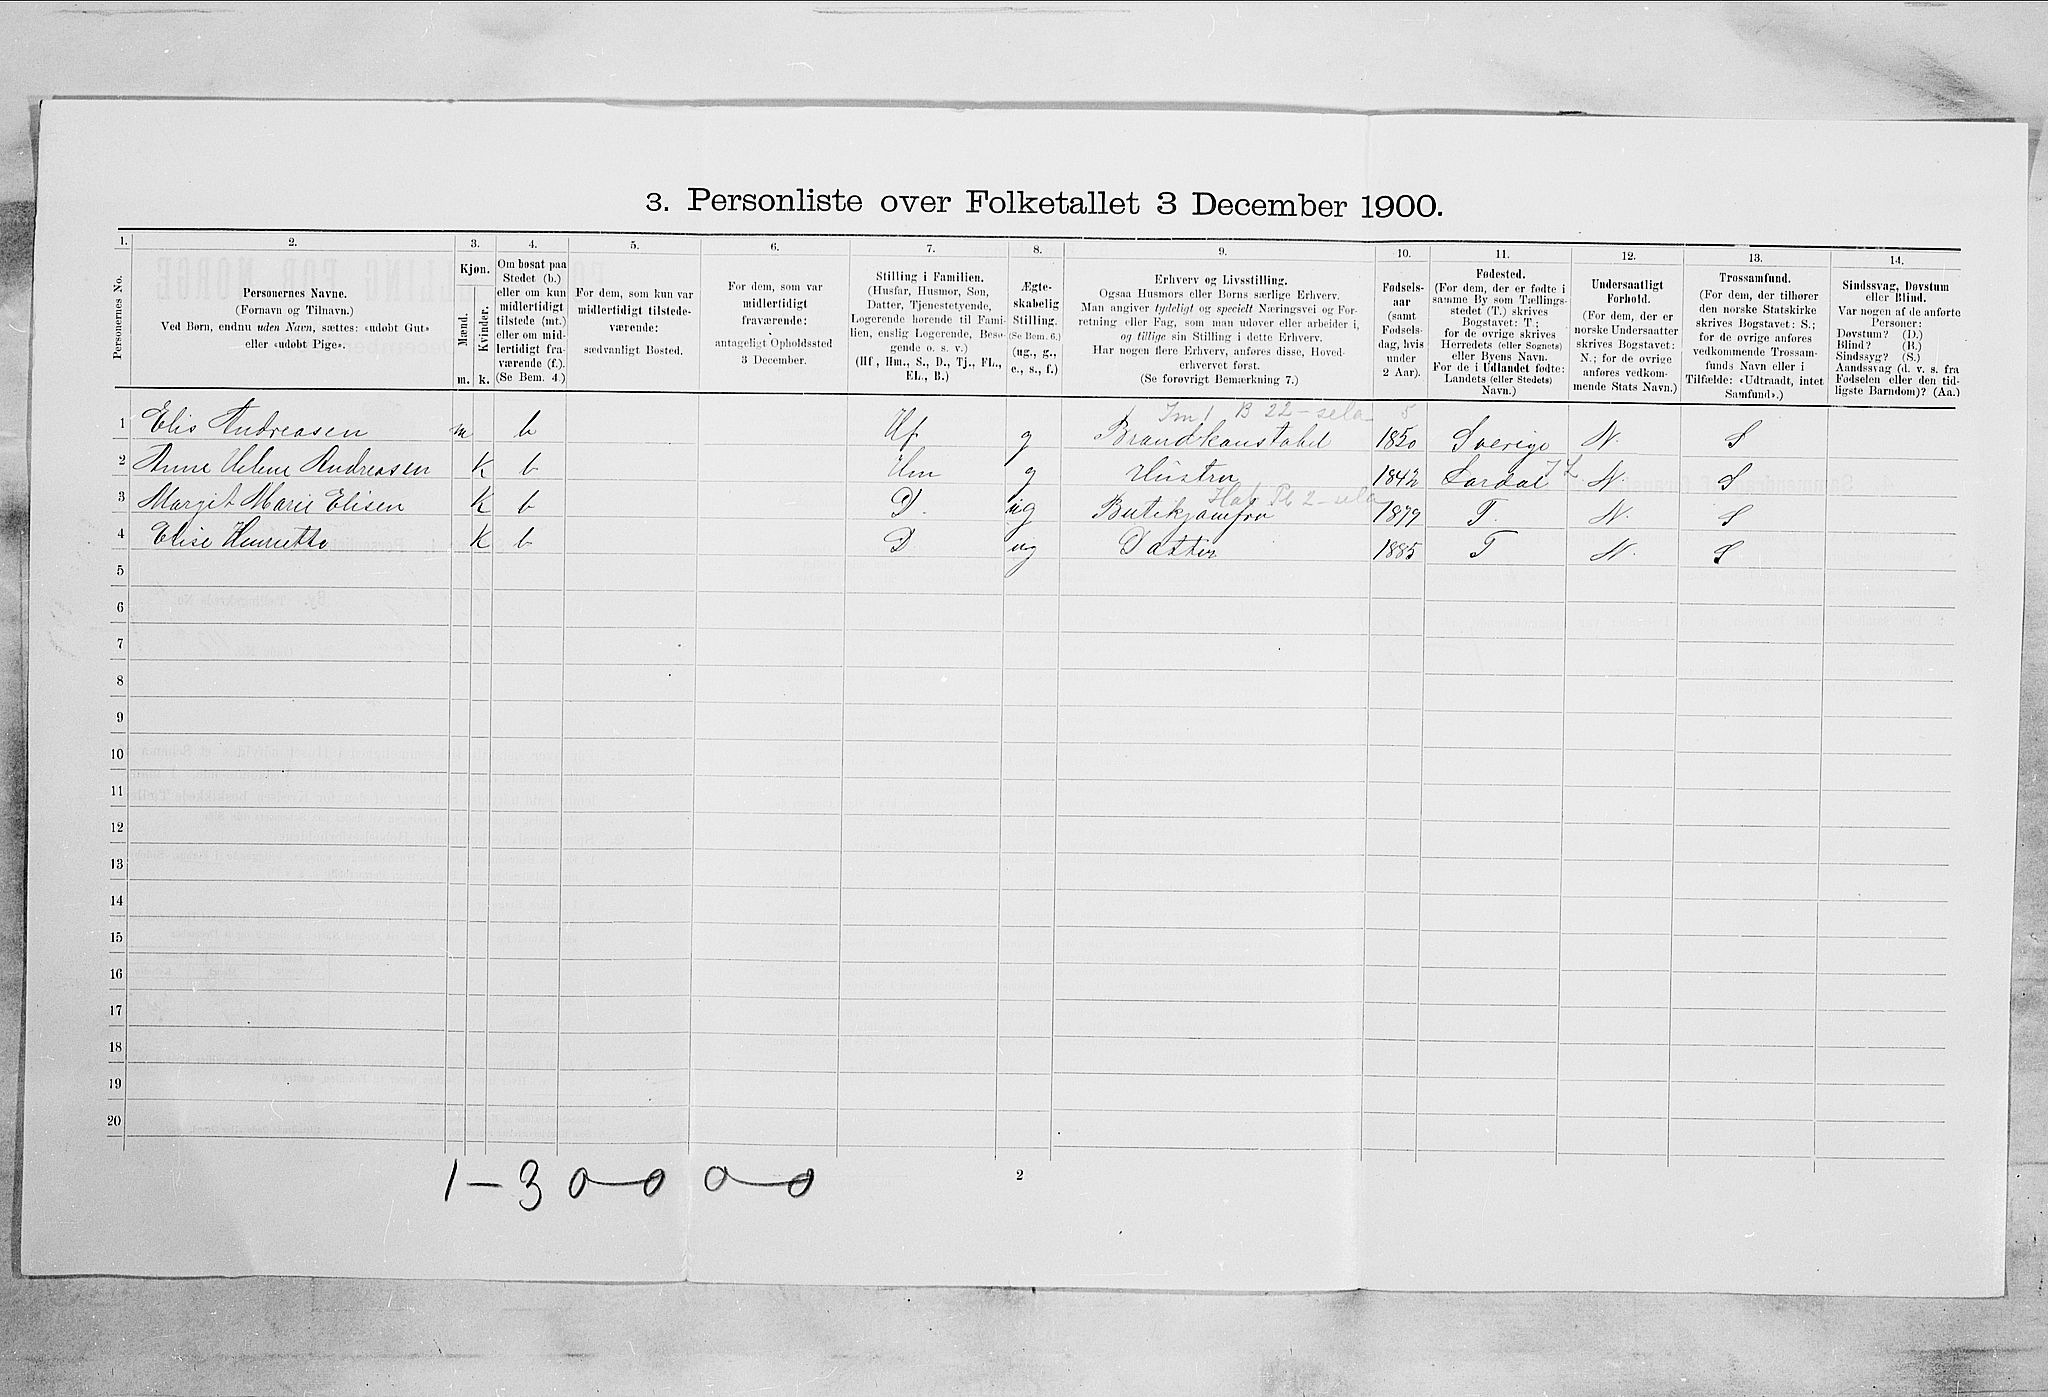 3. Personliste over Folketallet 3 December 1900.
1. 2. 3. 4. 5. 6. 7. 8. 9. 10. 11. 12. 13. 14.
Personernes No.
Personernes Navne.
(Fornavn og Tilnavn.)
Ved Børn, endnu uden Navn, sættes: «udøbt Gut»
eller «udøbt Pige».
Kjøn.
Mænd.
Kvinder.
m. k.
Om bosat paa
Stedet (b.)
eller om kun
midlertidigt
tilstede (mt.)
eller om mid-
lertidigt fra-
værende (f.).
(Se Bem. 4.)
For dem, som kun var
midlertidigt tilstede-
værende:
sædvanligt Bosted.
For dem, som var
midlertidigt
fraværende:
antageligt Opholdssted
3 December.
Stilling i Familien.
(Husfar, Husmor, Søn,
Datter, Tjenestetyende,
Logerende hørende til Fami-
lien, enslig Logerende, Besø-
gende o. s. v.)
(Hf, Hm., S., D., Tj., FL.,
EL., B.)
Ægte-
skabelig
Stilling.
(Se Bem. 6.)
(ug., g.,
e., s., f.)
Erhverv og Livsstilling.
Ogsaa Husmors eller Børns særlige Erhverv.
Man angiver tydeligt og specielt Næringsvei og For-
retning eller Fag, som man udøver eller arbeider i,
og tillige sin Stilling i dette Erhverv.
Har nogen flere Erhverv, anføres disse, Hoved-
erhvervet først.
(Se forøvrigt Bemærkning 7.)
Fødsels-
aar
(samt
Fødsels-
dag, hvis
under
2 Aar).
Fødested.
(For dem, der er fødte i
samme By som Tællings-
stedet (T.) skrives
Bogstavet: T.;
for de øvrige skrives
Herredets (eller Sognets)
eller Byens Navn.
For de i Udlandet fødte:
Landets (eller Stedets)
Navn.)
Undersaatligt
Forhold.
(For dem, der er
norske Undersaatter
skrives Bogstavet:
N.; for de øvrige
anføres vedkom-
mende Stats Navn.)
Trossamfund.
(For dem, der tilhører
den norske Statskirke
skrives Bogstavet: S.;
for de øvrige anføres
vedkommende Trossam-
funds Navn eller i
Tilfælde: «Udtraadt, intet
Samfund».)
Sindssvag, Døvstum
eller Blind.
Var nogen af de anførte
Personer:
Døvstum? (D.)
Blind? (B.)
Sindssyg? (S.)
Aandssvag (d. v. s. fra
Fødselen eller den tid-
ligste Barndom)? (Aa.)
B 22 - sela 5
1 Elis Andreasen m b Hf g Brandkonstabel 1850 Sverige N. S
2 Anne Helene Andreasen K b Hm g Hustru 1842 Lardal N. S
Pl 2 - sela
3 Margit Marie Elisen K b D. ug Butikjomfru 1879 T. N. S
4 Elise Henriette K b D ug Datter 1885 T N. S
5
6
7
8
9
10
11
12
13
14
15
16
17
18
19
20
1 - 3 0 0 0 0
2